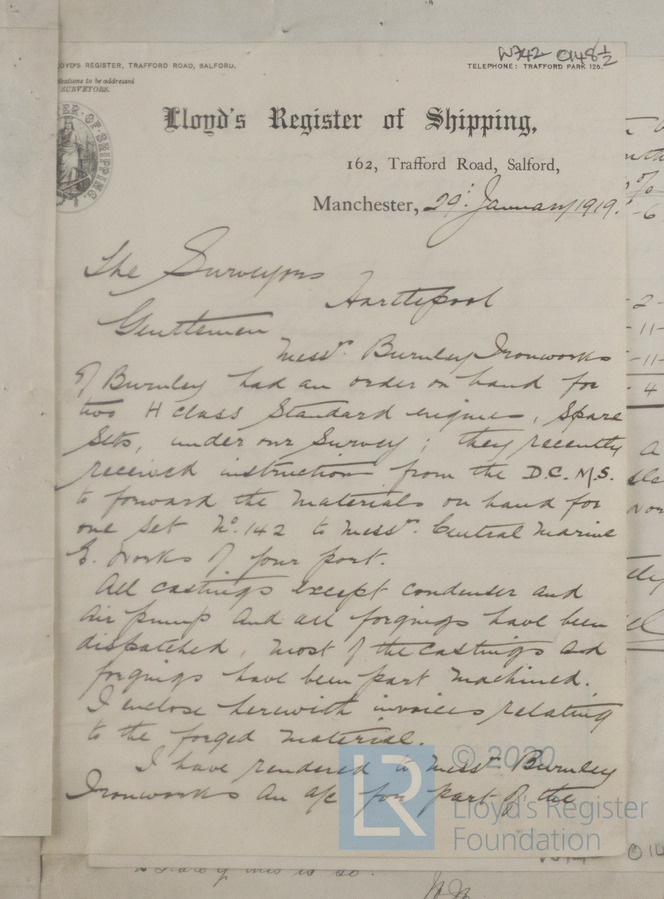 W742 0148½
LOYD'S REGISTER, TRAFFORD ROAD, SALFORD.
TELEPHONE: TRAFFORD PARK 126.
to be addressed
SURVEYORS.
Lloyd's Register of Shipping,
162, Trafford Road, Salford,
Manchester, 29: January 1919.
The Surveyors
Hartlepool
Gentlemen
Messrs. Burnley Ironworks
of Burnley had an order on hand for
two H class Standard engines, Spare
Sets, under our Survey; they recently
received instruction from the D.C.M.S.
to forward the materials on hand for
one set No. 142 to Messrs. Central Marine
E. Works of your port.
All castings except condenser and
air pump and all forgings have been
dispatched, most of the castings and
forgings have been part machined.
I enclose herewith invoices relating
to the forged material.
I have rendered to Messrs Burnley
Ironworks an a/c for part of the
© 2020
LR
Lloyd's Register
Foundation